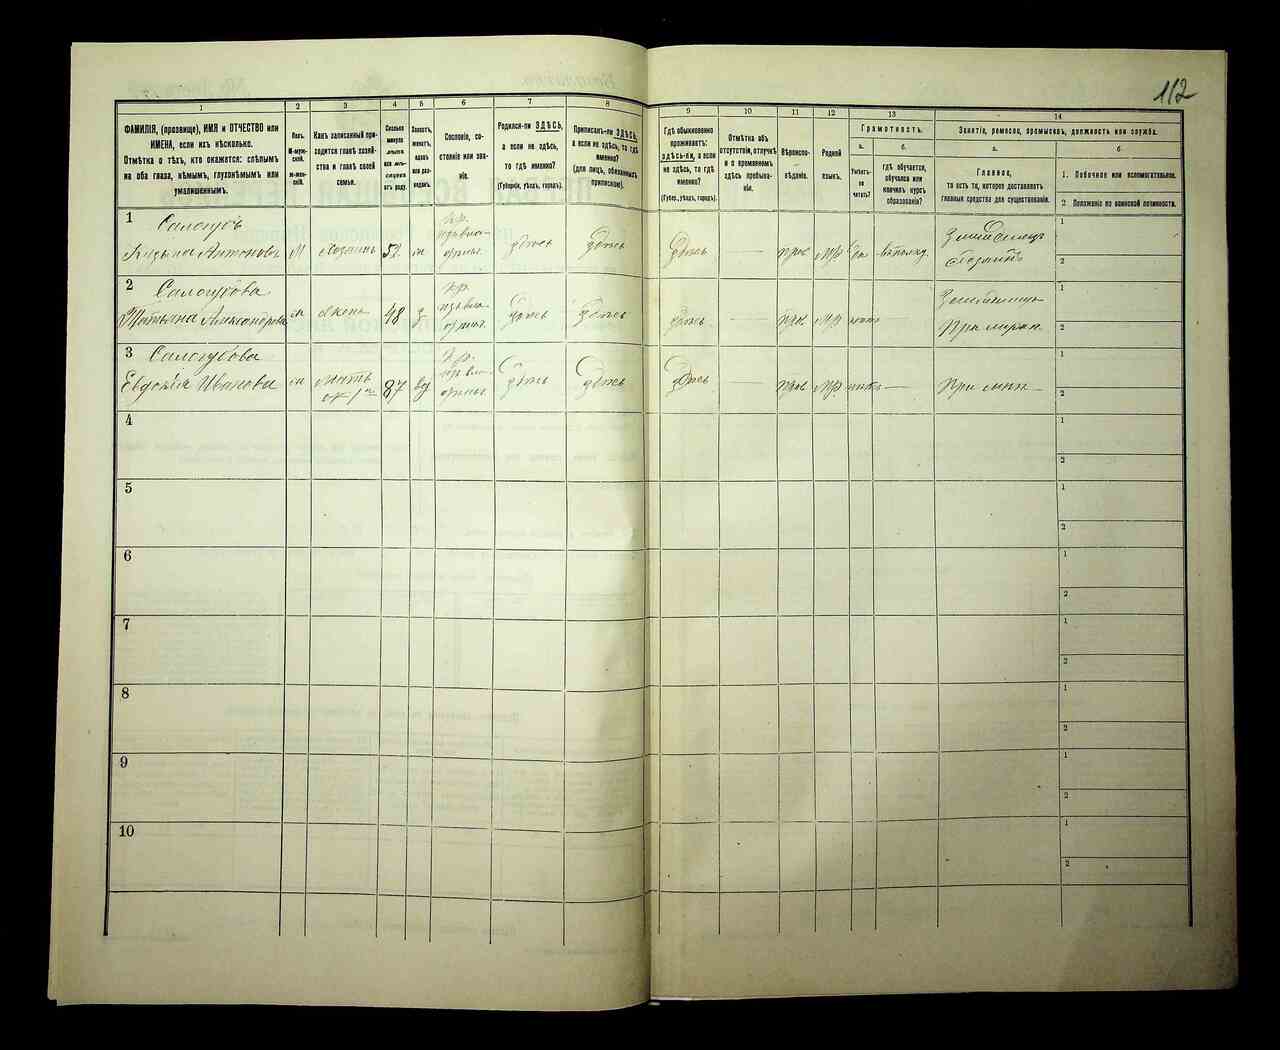 112
1
2
3
4
5
6
7
8
9
10
11
12
13
14
ФАМИЛІЯ, (прозвище), ИМЯ и ОТЧЕСТВО или
ИМЕНА, если ихъ нѣсколько.
Отмѣтка о тѣхъ, кто окажется: слѣпымъ
на оба глаза, нѣмымъ, глухонѣмымъ или
умалишеннымъ.
Полъ.
М-муж-
ской.
Ж-жен-
скій.
Какъ записанный при-
ходится главѣ хозяй-
ства и главѣ своей
семьи.
Сколько
минуло
лѣтъ
или мѣ-
сяцевъ
отъ роду.
Холостъ,
женатъ,
вдовъ
или раз-
веденъ.
Сословіе, со-
стояніе или зва-
ніе.
Родился-ли ЗДѢСЬ,
а если не здѣсь,
то гдѣ именно?
(Губернія, уѣздъ, городъ).
Приписанъ-ли ЗДѢСЬ,
а если не здѣсь, то гдѣ
именно?
(для лицъ, обязанныхъ
припискою).
Гдѣ обыкновенно
проживаетъ:
ЗДѢСЬ-ЛИ, а если
не здѣсь, то гдѣ
именно?
(Губер., уѣздъ, городъ).
Отмѣтка объ
отсутствіи, отлучкѣ
и о временномъ
здѣсь пребыва-
ніи.
Вѣроиспо-
вѣданіе.
Родной
языкъ.
Грамотность.
а.
Умѣетъ-
ли
читать?
б.
гдѣ обучается,
обучался или
кончилъ курсъ
образованія?
Занятіе, ремесло, промыселъ, должность или служба.
а.
Главное,
то есть то, которое доставляетъ
главныя средства для существованія.
б.
1. Побочное или вспомогательное.
2 Положеніе по воинской повинности.
1
Салогубъ
Кузьма Антоновъ М Хозяинъ 52 кр.
изъ вла- здѣсь здѣсь здѣсь — прав
Земледѣлецъ
Хозяинъ
1
2
2
Салогубова
Татьяна Александрова жена 48 кр.
изъ вла- здѣсь здѣсь здѣсь — прав —
1
2
3
Салогубова
Евдокія Иванова мать 87 вд кр.
изъ вла- здѣсь здѣсь здѣсь — прав —
1
2
4
1
2
5
1
2
6
1
2
7
1
2
8
1
2
9
1
2
10
1
2